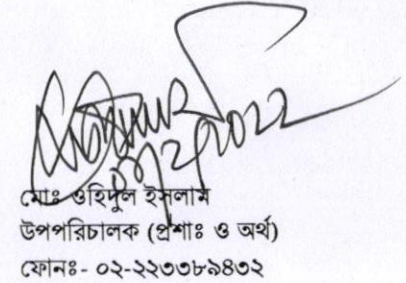 মোঃ ওহিদুল ইসলাম
উপপরিচালক (প্রশাঃ ও অর্থ)
ফোনঃ- ০২-২২৩৩৮৯৪৩২